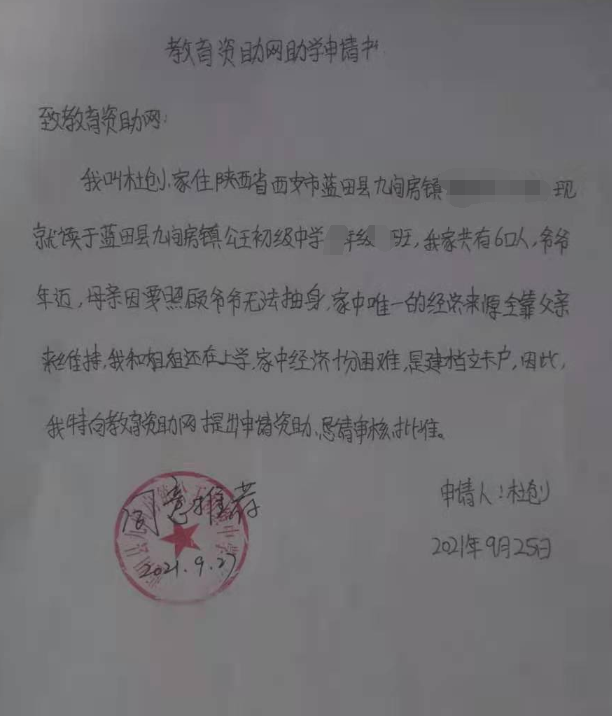 教育资助网助学申请书
致教育资助网:
我叫杜创,家住陕西省西安市蓝田县九间房镇 现
就读于蓝田县九间房镇公王初级中学 年级 班,我家共有6口人,爷爷
年迈,母亲因要照顾爷爷无法抽身,家中唯一的经济来源全靠父亲
来维持,我和姐姐还在上学,家中经济十分困难,是建档立卡户,因此,
我特向教育资助网提出申请资助、恳请审核批准。
同意推荐
2021.9.27
申请人:杜创
2021年9月25日